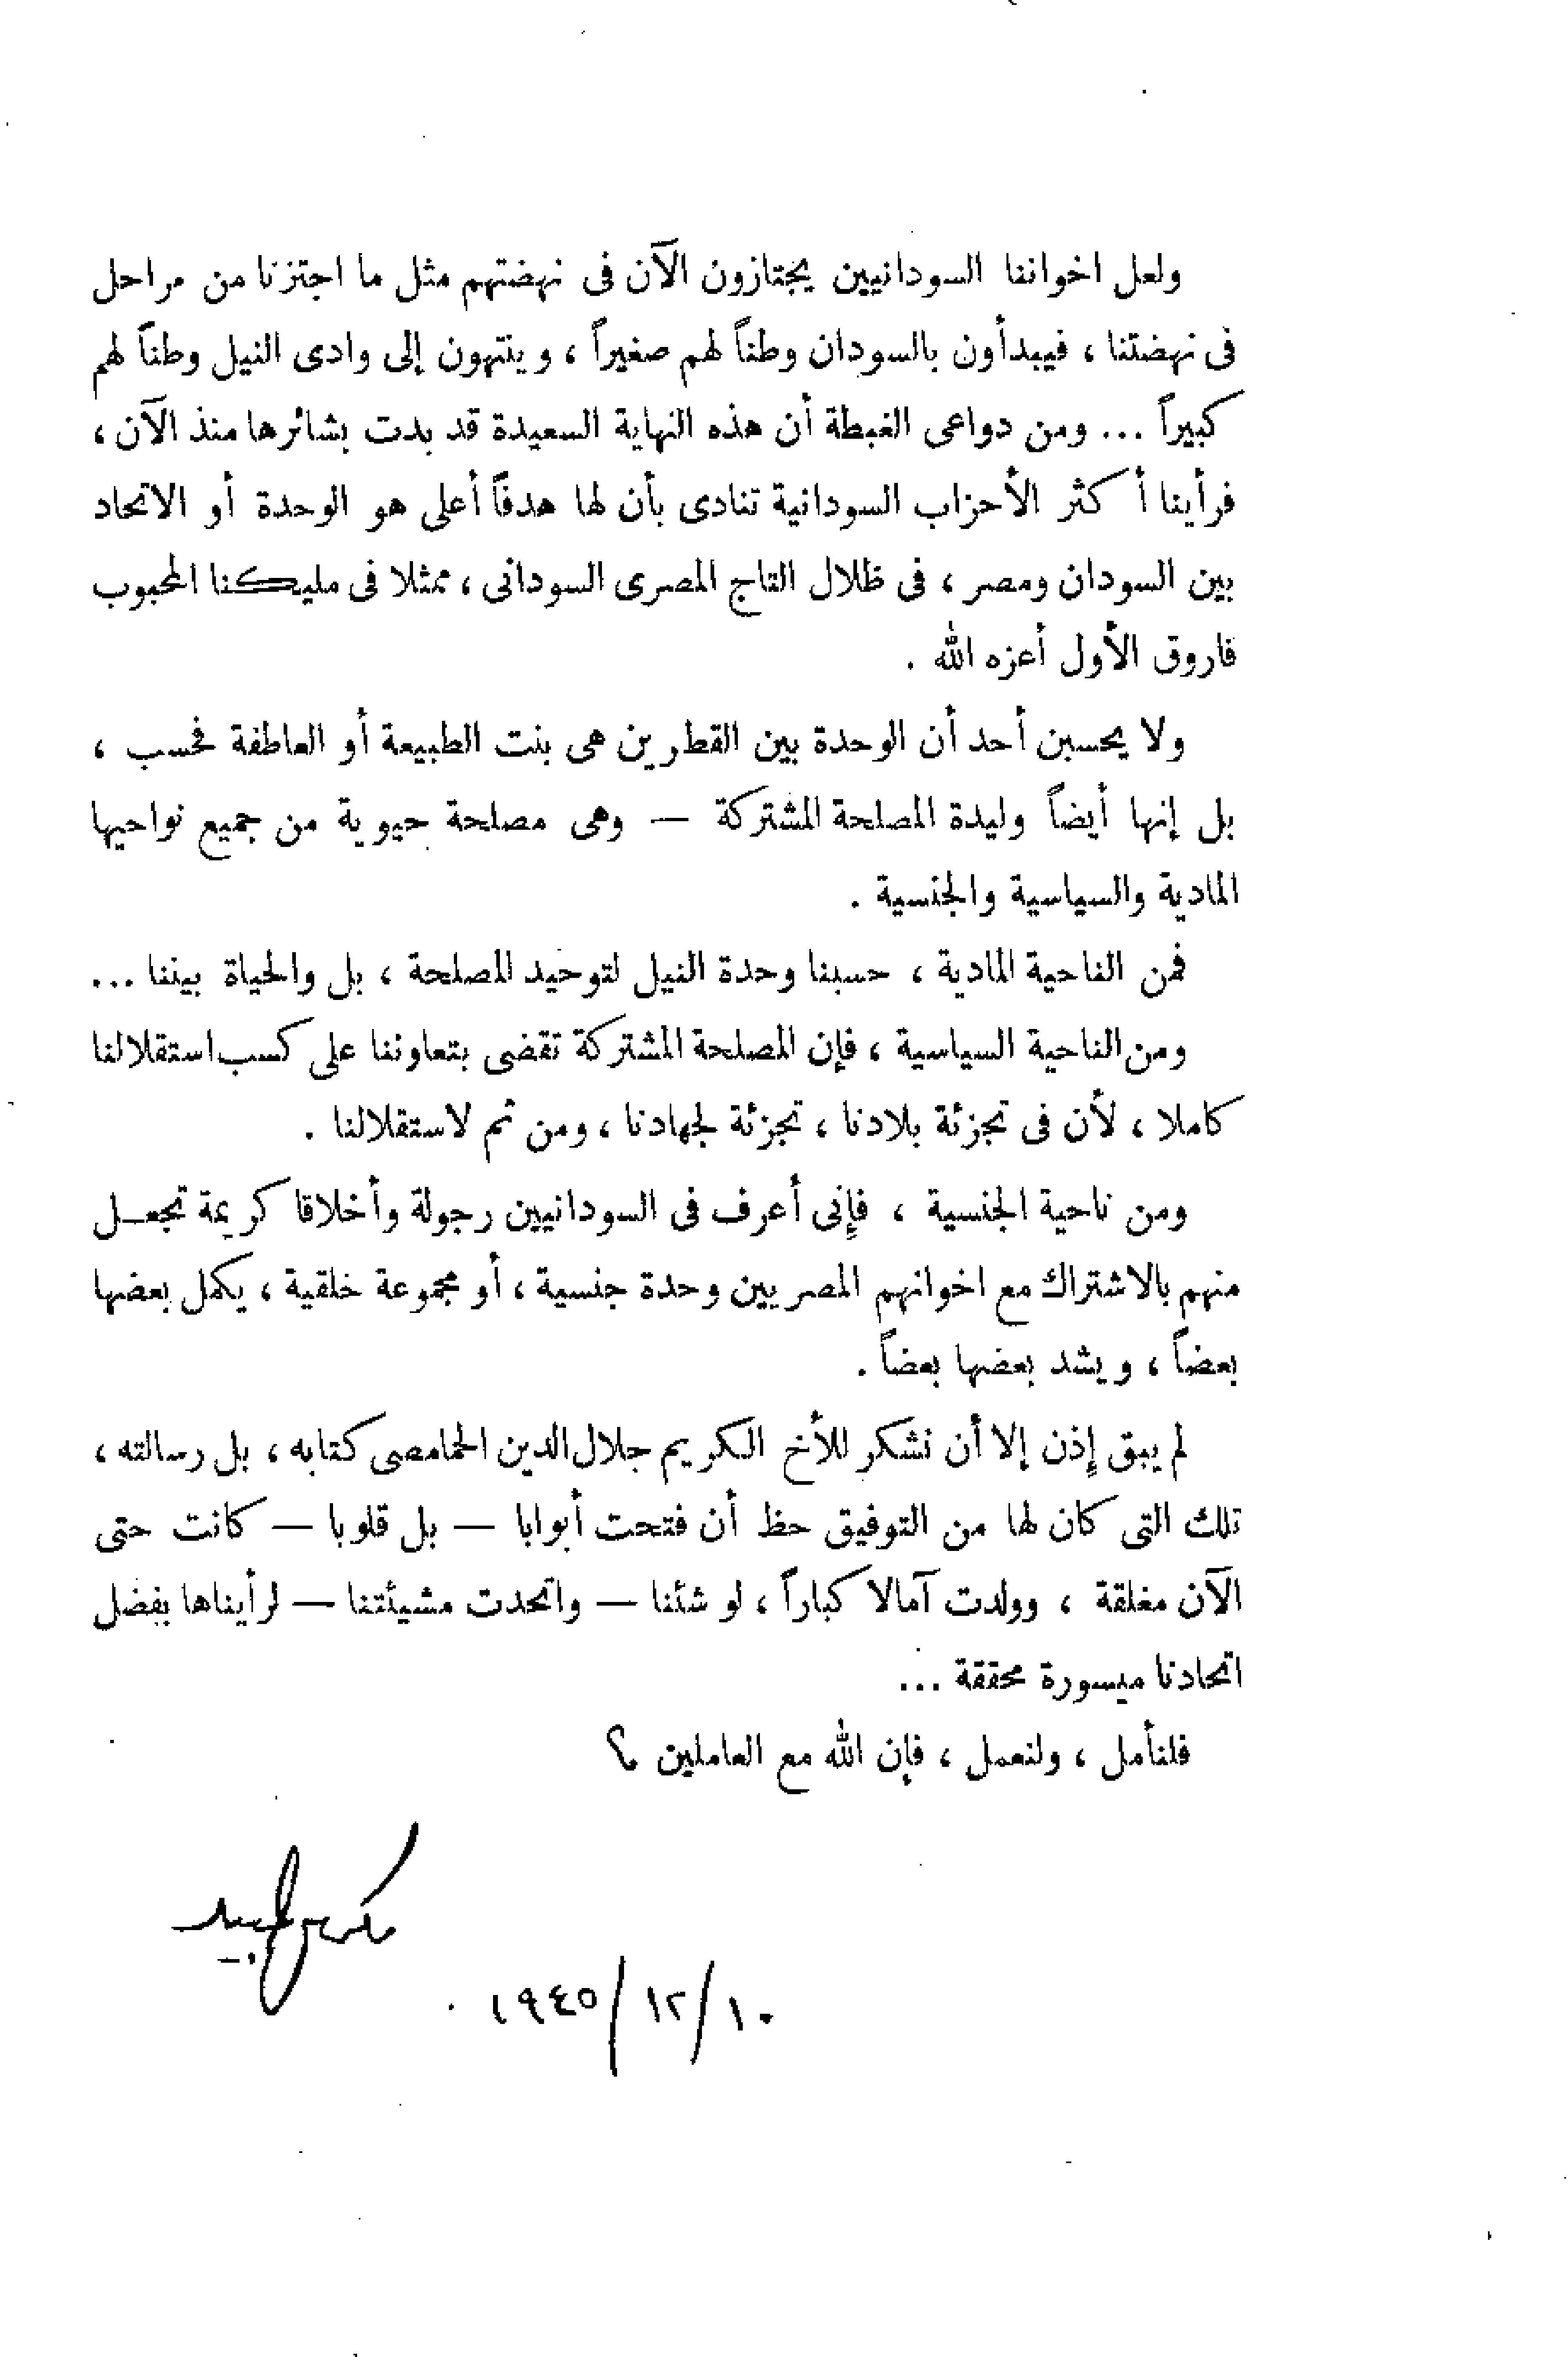 ولعل اخواننا السودانيين يجتازون الآن فى نهضتهم مثل ما اجتزنا من مراحل
فى نهضتنا ، فيبدأون بالسودان وطناً لهم صغيراً ، وينتهون إلى وادى النيل وطناً لهم
كبيراً ... ومن دواعى الغبطة أن هذه النهاية السعيدة قد بدت بشائرها منذ الآن ،
فرأينا أكثر الأحزاب السودانية تنادى بأن لها هدفاً أعلى هو الوحدة أو الاتحاد
بين السودان ومصر ، فى ظلال التاج المصرى السودانى ، ممثلا فى مليكنا المحبوب
فاروق الأول أعزه الله .
ولا يحسبن أحد أن الوحدة بين القطرين هى بنت الطبيعة أو العاطفة فحسب ،
بل إنها أيضاً وليدة المصلحة المشتركة — وهى مصلحة حيوية من جميع نواحيها
المادية والسياسية والجنسية .
فمن الناحية المادية ، حسبنا وحدة النيل لتوحيد المصلحة ، بل والحياة بيننا ...
ومن الناحية السياسية ، فإن المصلحة المشتركة تقضى بتعاوننا على كسب استقلالنا
كاملا ، لأن فى تجزئة بلادنا ، تجزئة لجهادنا ، ومن ثم لاستقلالنا .
ومن ناحية الجنسية ، فإنى أعرف فى السودانيين رجولة وأخلاقا كريمة تجعـل
منهم بالاشتراك مع اخوانهم المصريين وحدة جنسية ، أو مجموعة خلقية ، يكمل بعضها
بعضاً ، ويشد بعضها بعضاً .
لم يبق إذن إلا أن نشكر للأخ الكريم جلال الدين الحمامصى كتابه ، بل رسالته ،
تلك التى كان لها من التوفيق حظ أن فتحت أبوابا — بل قلوبا — كانت حتى
الآن مغلقة ، وولدت آمالا كباراً ، لو شئنا — واتحدت مشيئتنا — لرأيناها بفضل
اتحادنا ميسورة محققة ...
فلنأمل ، ولنعمل ، فإن الله مع العاملين ؟
مكرم عبيد
١٠/١٢/١٩٤٥